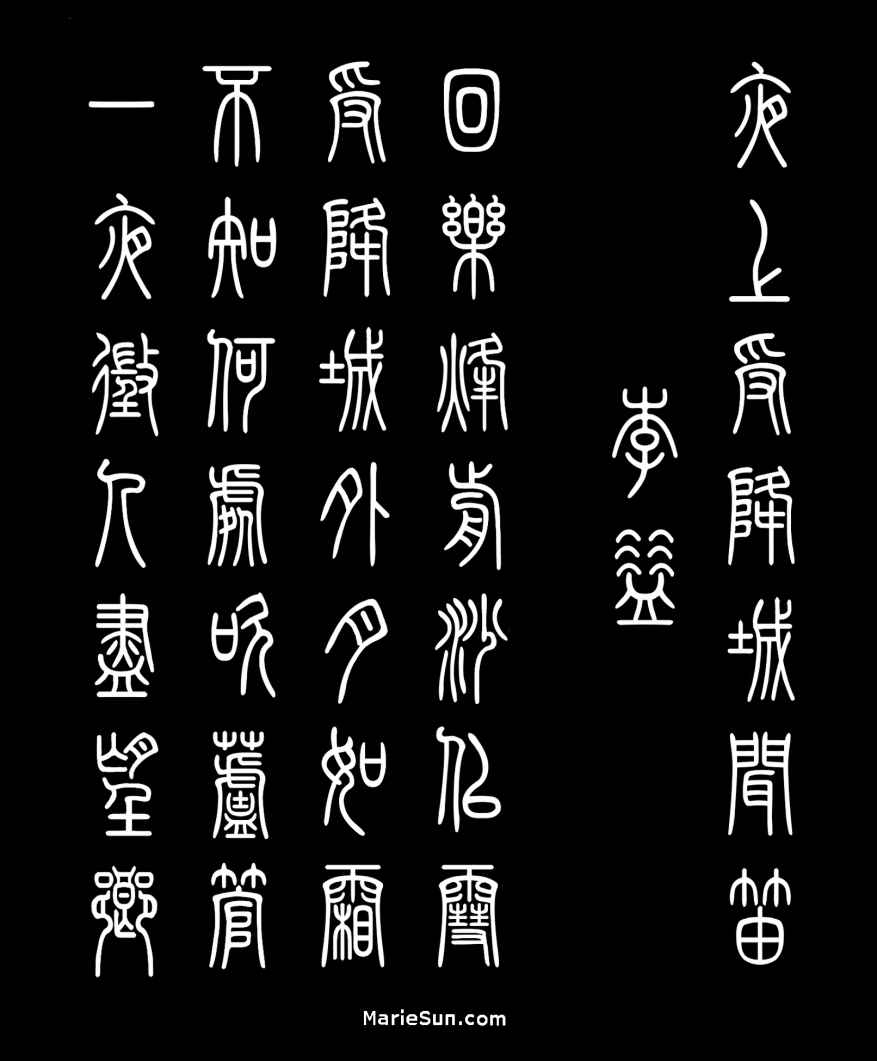 夜上受降城聞笛
李益
回樂烽前沙似雪
受降城外月如霜
不知何處吹蘆管
一夜徵人盡望鄉
MarieSun.com